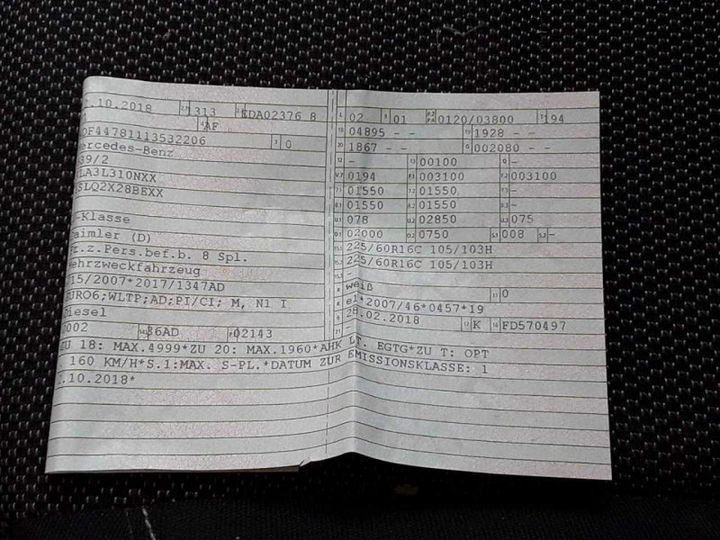 .10.2018 1313 EDA02376 8
AF
DF44781113532206 0
ercedes-Benz
39/2
LA3L310NXX
SLQ2X28BEXX
-Klasse
aimler (D)
z.z.Pers.bef.b. 8 Spl.
ehrzweckfahrzeug
15/2007*2017/1347AD
EURO6;WLTP;AD;PI/CI; M, N1 I
Diesel
0002 36AD 02143
02 01 0120/03800 194
04895 - - 1928 - -
1867 - - 002080 - -
- 00100 -
0194 003100 003100
01550 01550 -
01550 01550 -
078 02850 075
02000 0750 008 -
225/60R16C 105/103H
225/60R16C 105/103H
weiß 0
e1*2007/46*0457*19
28.02.2018 K FD570497
ZU 18: MAX.4999*ZU 20: MAX.1960*AHK LT. EGTG*ZU T: OPT
. 160 KM/H*S.1:MAX. S-PL.*DATUM ZUR EMISSIONSKLASSE: 1
.10.2018*